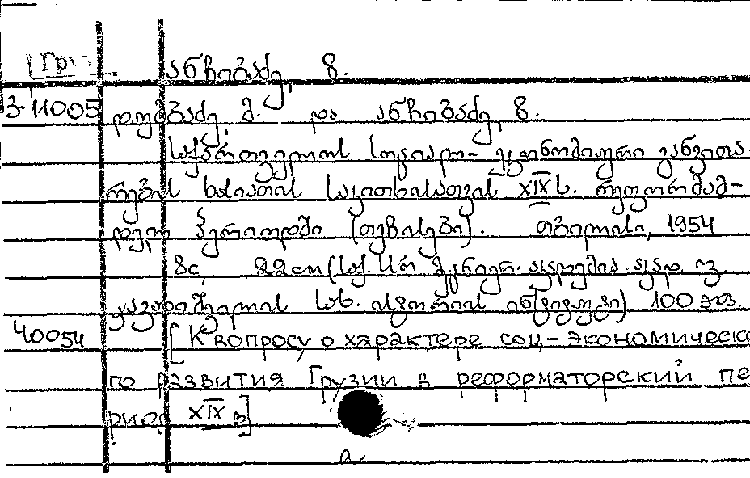 [Гру
ანჩაბაძე, ზ.
3-11005 დუმბაძე, მ. და ანჩაბაძე, ზ.
საქართველოს სოციალ-ეკონომიური განვითა-
რების ხასიათის საკითხისათვის XIX ს. რეფორმამ-
დელ პერიოდში (თეზისები). თბილისი, 1954
8с. 22 cm (საქ. სსრ მეცნიერ. აკადემია. აკად. ივ.
ჯავახიშვილის სახ. ისტორიის ინსტიტუტი) 100 ეგზ.
40054 [К вопросу о характере соц-экономическо
го развития Грузии в реформаторский пе
риод XIX в]